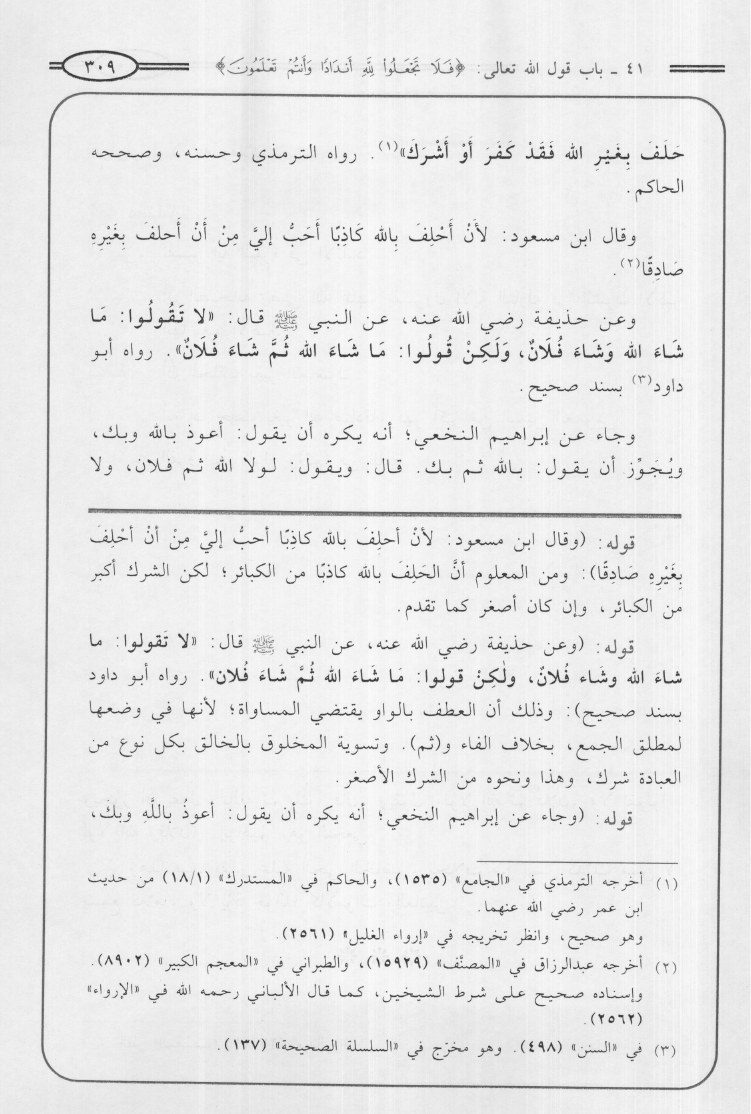 ٤١ ـ باب قول الله تعالى: ﴿فَلَا تَجْعَلُوا۟ لِلَّهِ أَندَادًا وَأَنتُمْ تَعْلَمُونَ﴾ ٣٠٩
حَلَفَ بِغَيْرِ الله فَقَدْ كَفَرَ أَوْ أَشْرَكَ»(١). رواه الترمذي وحسنه، وصححه
الحاكم.
وقال ابن مسعود: لأَنْ أَحْلِفَ بِالله كَاذِبًا أَحَبُّ إليَّ مِنْ أَنْ أَحلفَ بِغَيْرِهِ
صَادِقًا(٢).
وعن حذيفة رضي الله عنه، عن النبي ﷺ قال: «لا تَقُولُوا: مَا
شَاءَ الله وَشَاءَ فُلَانٌ، وَلَكِنْ قُولُوا: مَا شَاءَ الله ثُمَّ شَاءَ فُلَانٌ». رواه أبو
داود(٣) بسند صحيح.
وجاء عن إبراهيم النخعي؛ أنه يكره أن يقول: أعوذ بالله وبك،
ويُجَوِّز أن يقول: بالله ثم بك. قال: ويقول: لولا الله ثم فلان، ولا
قوله: (وقال ابن مسعود: لأنْ أحلِفَ بالله كاذِبًا أحبُّ إليَّ مِنْ أنْ أحْلِفَ
بِغَيْرِهِ صَادِقًا): ومن المعلوم أنَّ الحَلِفَ بالله كاذبًا من الكبائر؛ لكن الشرك أكبر
من الكبائر، وإن كان أصغر كما تقدم.
قوله: (وعن حذيفة رضي الله عنه، عن النبي ﷺ قال: «لا تَقولوا: ما
شاءَ الله وشاء فُلانٌ، ولٰكِنْ قولوا: مَا شَاءَ الله ثُمَّ شَاءَ فُلان». رواه أبو داود
بسند صحيح): وذلك أن العطف بالواو يقتضي المساواة؛ لأنها في وضعها
لمطلق الجمع، بخلاف الفاء و(ثم). وتسوية المخلوق بالخالق بكل نوع من
العبادة شرك، وهذا ونحوه من الشرك الأصغر.
قوله: (وجاء عن إبراهيم النخعي؛ أنه يكره أن يقول: أعوذُ باللَّهِ وبكَ،
(١) أخرجه الترمذي في «الجامع» (١٥٣٥)، والحاكم في «المستدرك» (١٨/١) من حديث
ابن عمر رضي الله عنهما.
وهو صحيح، وانظر تخريجه في «إرواء الغليل» (٢٥٦١).
(٢) أخرجه عبدالرزاق في «المصنَّف» (١٥٩٢٩)، والطبراني في «المعجم الكبير» (٨٩٠٢).
وإسناده صحيح على شرط الشيخين، كما قال الألباني رحمه الله في «الإرواء»
(٢٥٦٢).
(٣) في «السنن» (٤٩٨). وهو مخرّج في «السلسلة الصحيحة» (١٣٧).